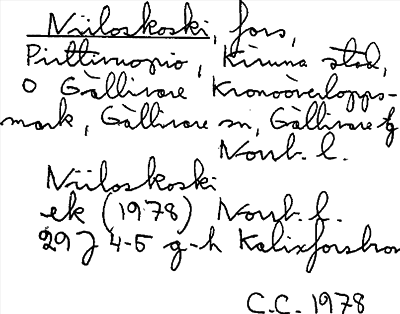 Niiloskoski, fors,
Pirttivuopio, Kiruna stad,
o Gällivare Kronoöverlopps-
mark, Gällivare sn, Gällivare tg
Norrb. l.
Niiloskoski
ek (1978) Norrb. l.
29J 4-5 g-h Kalixforsbron
C.C. 1978